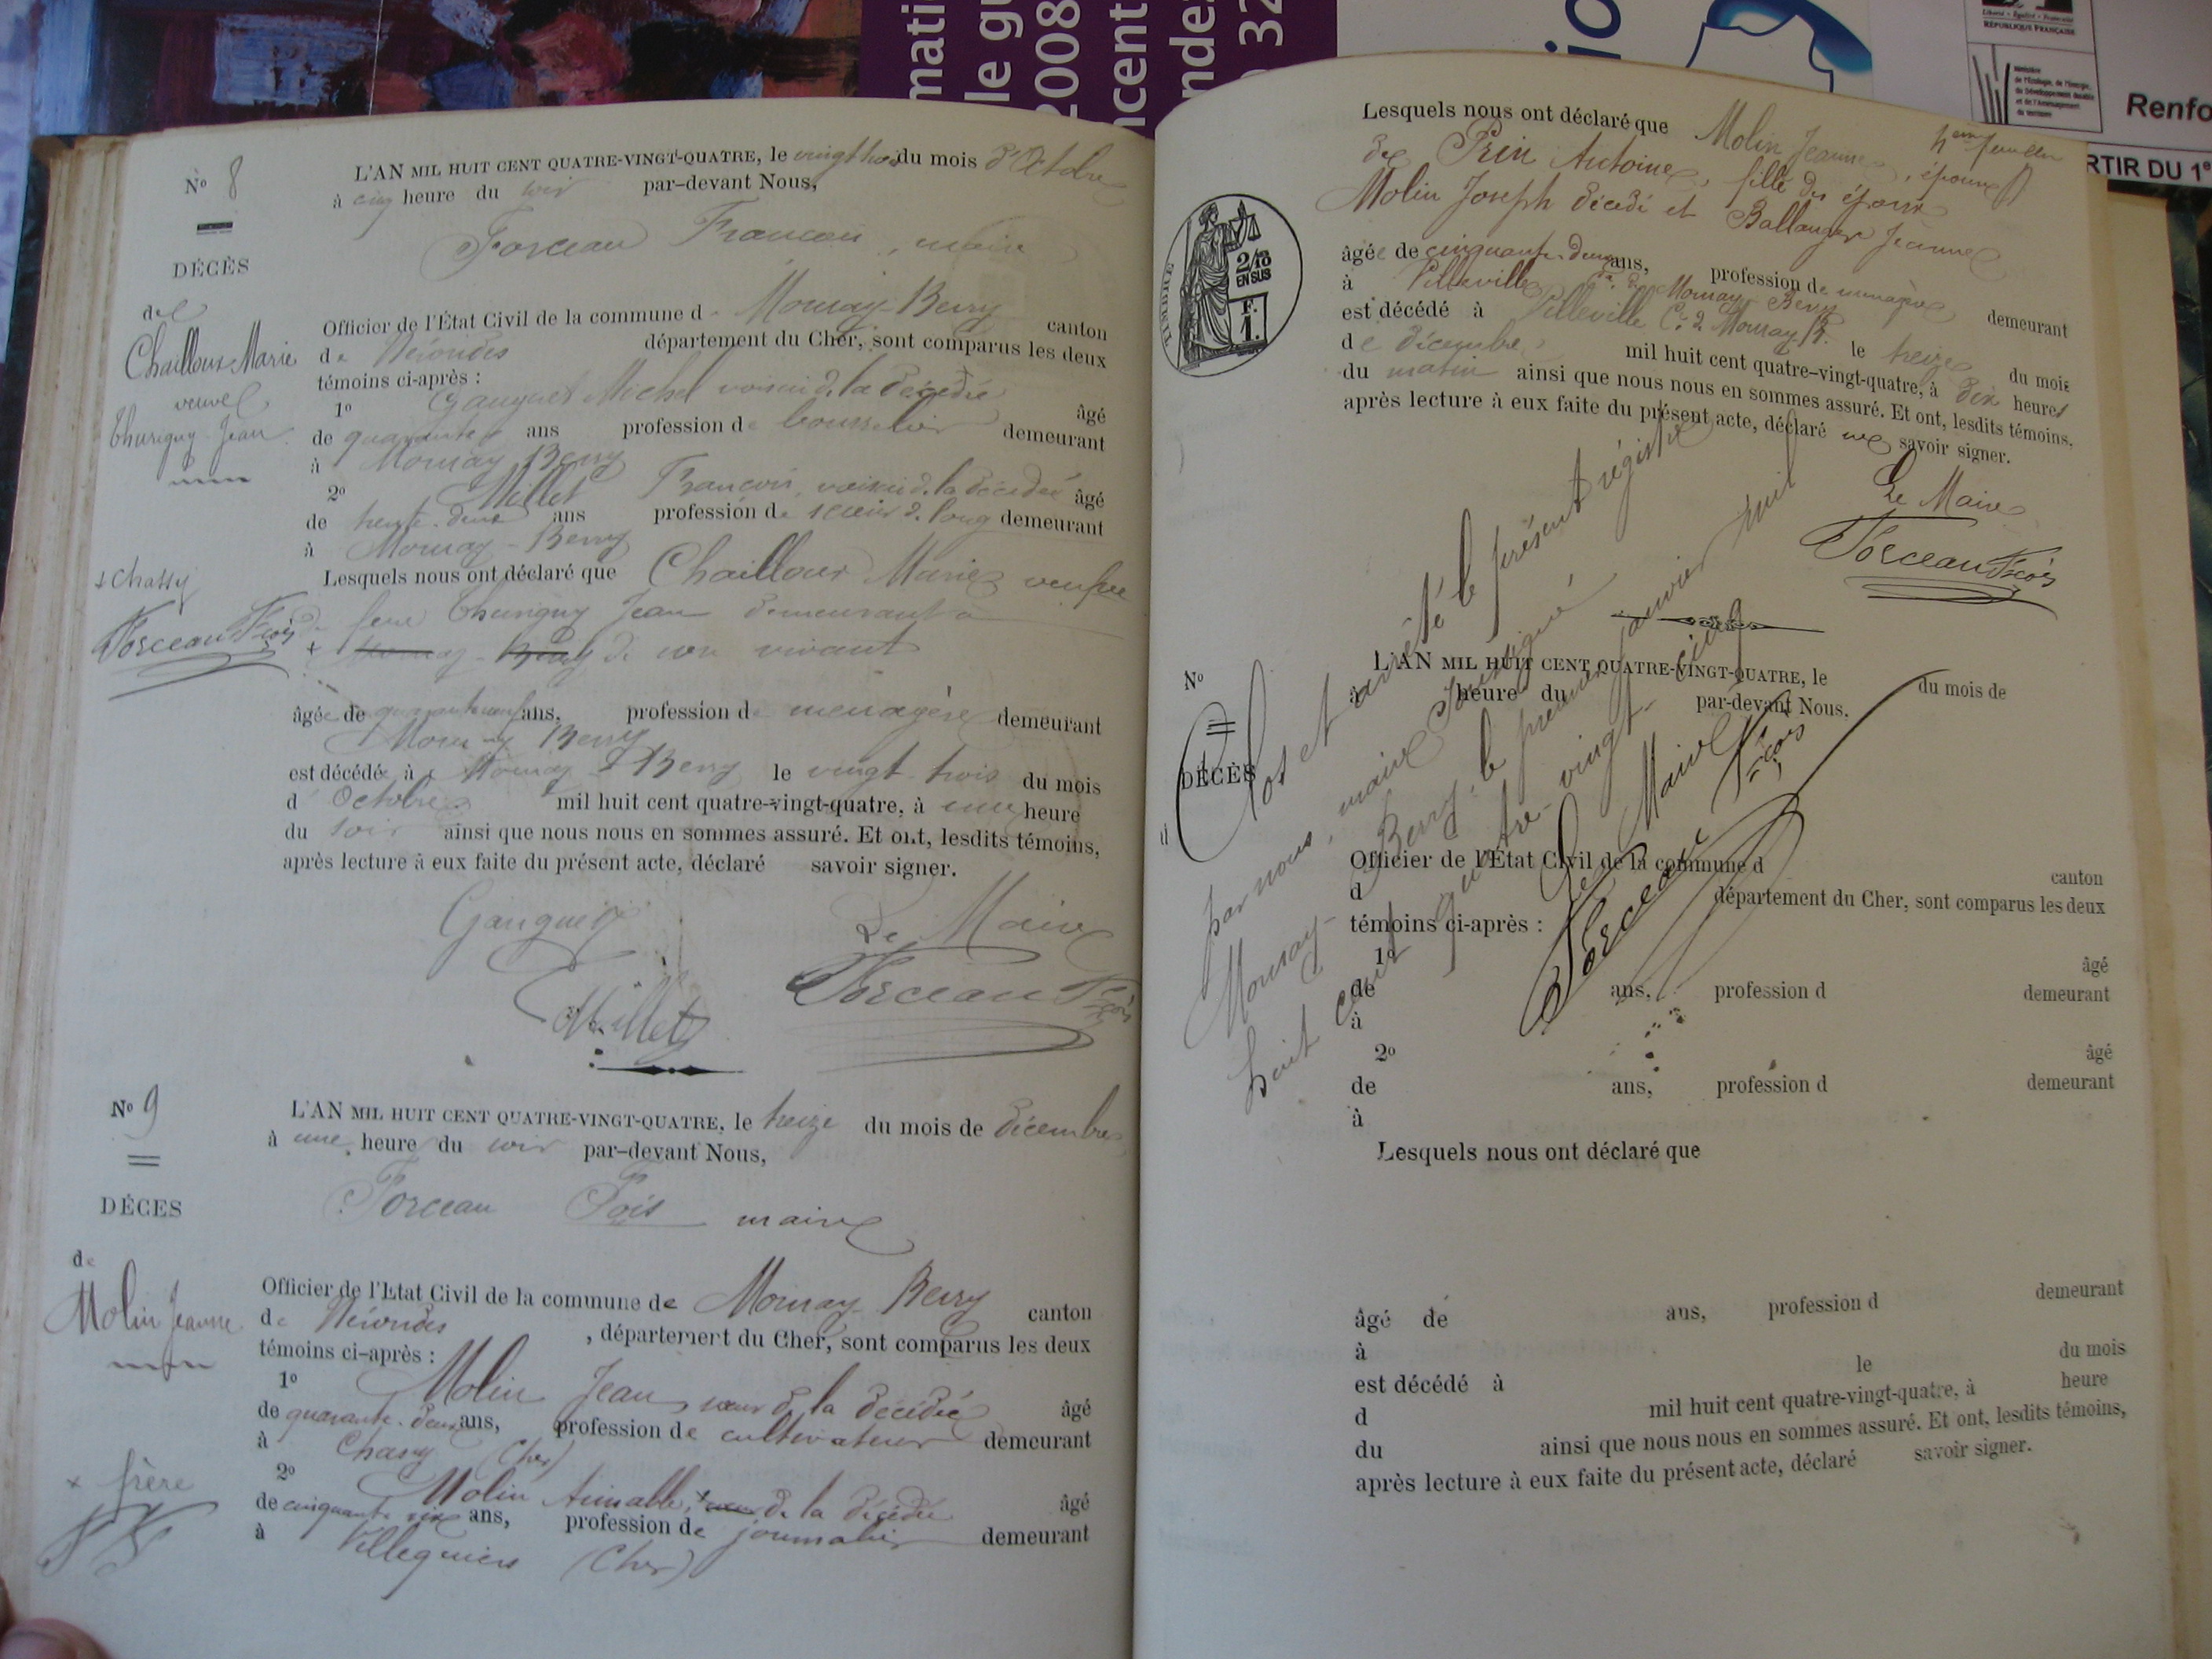 mati
le gu
2008
ncent
ndez
32
io
Liberté • Égalité • Fraternité
RÉPUBLIQUE FRANÇAISE
Ministère
de l'Écologie, de l'Énergie,
du Développement durable
et de l'Aménagement
du territoire
Renfo
RTIR DU 1e
No 8
DÉCÈS
de
Chailloux Marie
veuve
Thurigny Jean
L'AN MIL HUIT CENT QUATRE-VINGT-QUATRE, le vingt trois du mois d'Octobre
à cinq heure du soir par-devant Nous,
Forceau François, maire
Officier de l'État Civil de la commune d Mornay-Berry canton
de Nérondes département du Cher, sont comparus les deux
témoins ci-après :
1o Gauguet Michel voisin de la décédée âgé
de quarante ans profession de bourrelier demeurant
à Mornay Berry
2o Millet François, voisin de la décédée âgé
de trente-deux ans profession de scieur de long demeurant
à Mornay-Berry
Lesquels nous ont déclaré que Chailloux Marie veuve
de feu Thurigny Jean demeurant à
+ Mornay-Berry de son vivant
+ Chassy
Forceau Fçois
âgée de quarante neuf ans, profession de ménagère demeurant
à Mornay Berry
est décédée à Mornay-Berry le vingt trois du mois
d'Octobre mil huit cent quatre-vingt-quatre, à une heure
du soir ainsi que nous nous en sommes assuré. Et ont, lesdits témoins,
après lecture à eux faite du présent acte, déclaré savoir signer.
Gauguet
Le Maire
Millet
Forceau Fçois
No 9
DÉCES
de
Molin Jeanne
L'AN MIL HUIT CENT QUATRE-VINGT-QUATRE, le treize du mois de décembre
à une heure du soir par-devant Nous,
Forceau Fois maire
Officier de l'Etat Civil de la commune de Mornay-Berry canton
de Nérondes, département du Cher, sont comparus les deux
témoins ci-après :
1o Molin Jean, sœur de la décédée âgé
de quarante-deux ans, profession de cultivateur demeurant
à Chassy (Cher)
2o Molin Aimable, + sœur de la décédée âgé
de cinquante six ans, profession de journalier demeurant
à Villequiers (Cher)
+ frère
Lesquels nous ont déclaré que Molin Jeanne, épouse
de Prin Antoine, fille des époux
Molin Joseph décédé et Ballanger Jeanne
TIMBRE
2/10
EN SUS
F.
1.
âgée de cinquante-deux ans, profession de ménagère demeurant
à Villeville Cne de Mornay Berry
est décédé à Villeville Cne de Mornay-B. le treize du mois
de décembre mil huit cent quatre-vingt-quatre, à dix heures
du matin ainsi que nous nous en sommes assuré. Et ont, lesdits témoins,
après lecture à eux faite du présent acte, déclaré ne savoir signer.
Le Maire
Forceau Fçois
No
DÉCÈS
L'AN MIL HUIT CENT QUATRE-VINGT-QUATRE, le du mois de
à heure du par-devant Nous.
Clos et arrêté le présent régistre
par nous, maire soussigné
Mornay-Berry, le premier janvier mil
huit cent quatre-vingt-cinq
Le Maire
Forceau Fçois
Officier de l'État Civil de la commune d canton
d département du Cher, sont comparus les deux
témoins ci-après :
1o âgé
de ans, profession d demeurant
à
2o âgé
de ans, profession d demeurant
à
Lesquels nous ont déclaré que
âgé de ans, profession d demeurant
à
est décédé à le du mois
d mil huit cent quatre-vingt-quatre, à heure
du ainsi que nous nous en sommes assuré. Et ont, lesdits témoins,
après lecture à eux faite du présent acte, déclaré savoir signer.